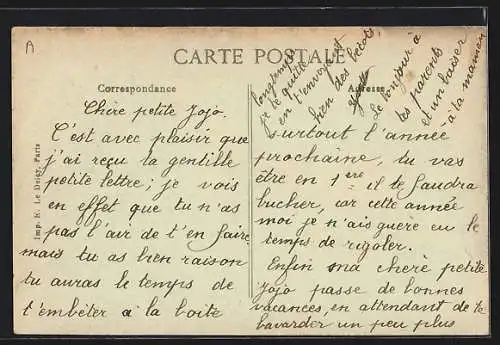 A
CARTE POSTALE
Correspondance
Adresse
Imp. E. Le Deley, Paris
Chère petite Jojo.
C'est avec plaisir que
j'ai reçu la gentille
petite lettre ; je vois
en effet que tu n'as
pas l'air de t'en faire
mais tu as bien raison
tu auras le temps de
t'embêter à la boite
surtout l'année
prochaine, tu vas
être en 1ère il te faudra
bucher, car cette année
moi je n'ais guère eu le
temps de rigoler.
Enfin ma chere petite
Jojo passe de bonnes
vacances, en attendant de te
bavarder un peu plus
longtemps
je te quitte
en t'envoyant
bien des bécots,
Le bonjour à
tes parents
et un baiser
à la maman